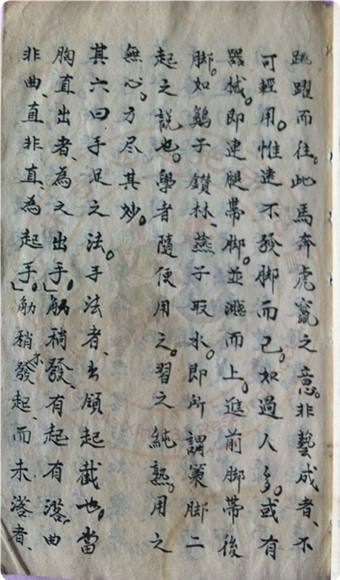 跳躍而往。此馬奔虎竄之意。非藝成者、不
可輕用。惟遠不發脚而已。如過人多。或有
器械。即連腿帶脚。並遄而上。進前脚帶後
脚。如鷂子鑽林、燕子取水。即所謂策脚二
起之說也。學者隨便用之。習之純熟。用之
無心。方尽其妙。
其六曰手足之法。手法者、出領起截也。當
胸直出者、為之出手。觔稍發、有起有落。曲
非曲、直非直、為起手。觔稍不發起、而未落者、